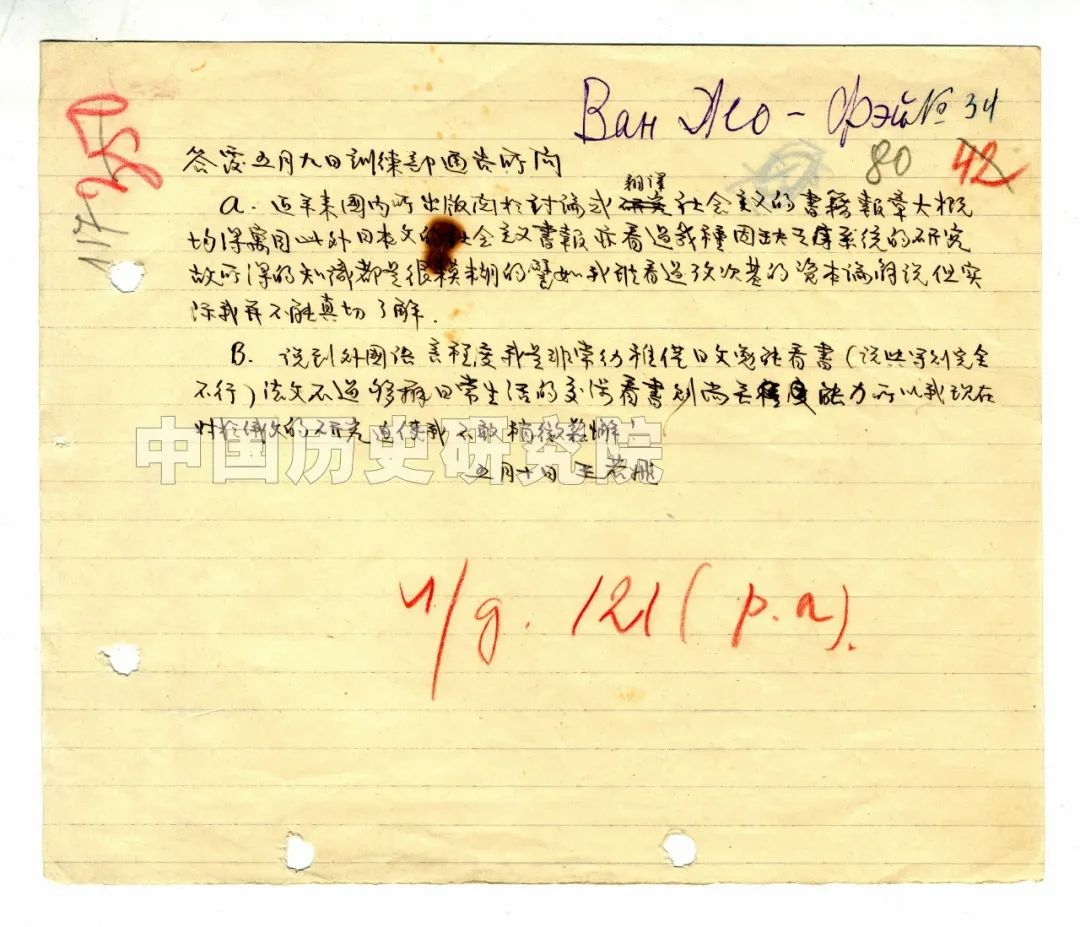 Ван Жо-Фэй № 34
80 42
117 250
答覆五月九日訓練部通告所问
翻譯
A. 近年来國内所出版関於討論或 社会主义的書籍報章大概
均得寓目此外日本文的社会主义書報亦看过幾種因缺乏系统的研究
故所得的知識都是很模糊的譬如我雖看过考次基的资本論解说但实
际我并不能真切了解.
B. 说到外國语言程度我是非常幼稚僅日文忽能看書(说与写则完全
不行)法文不过够办日常生活的交涉看書则尚无 能力所以我现在
对於俄文的研究迫使我不敢稍微懈
五月十日 王若飛
中国历史研究院
121 (р.а).